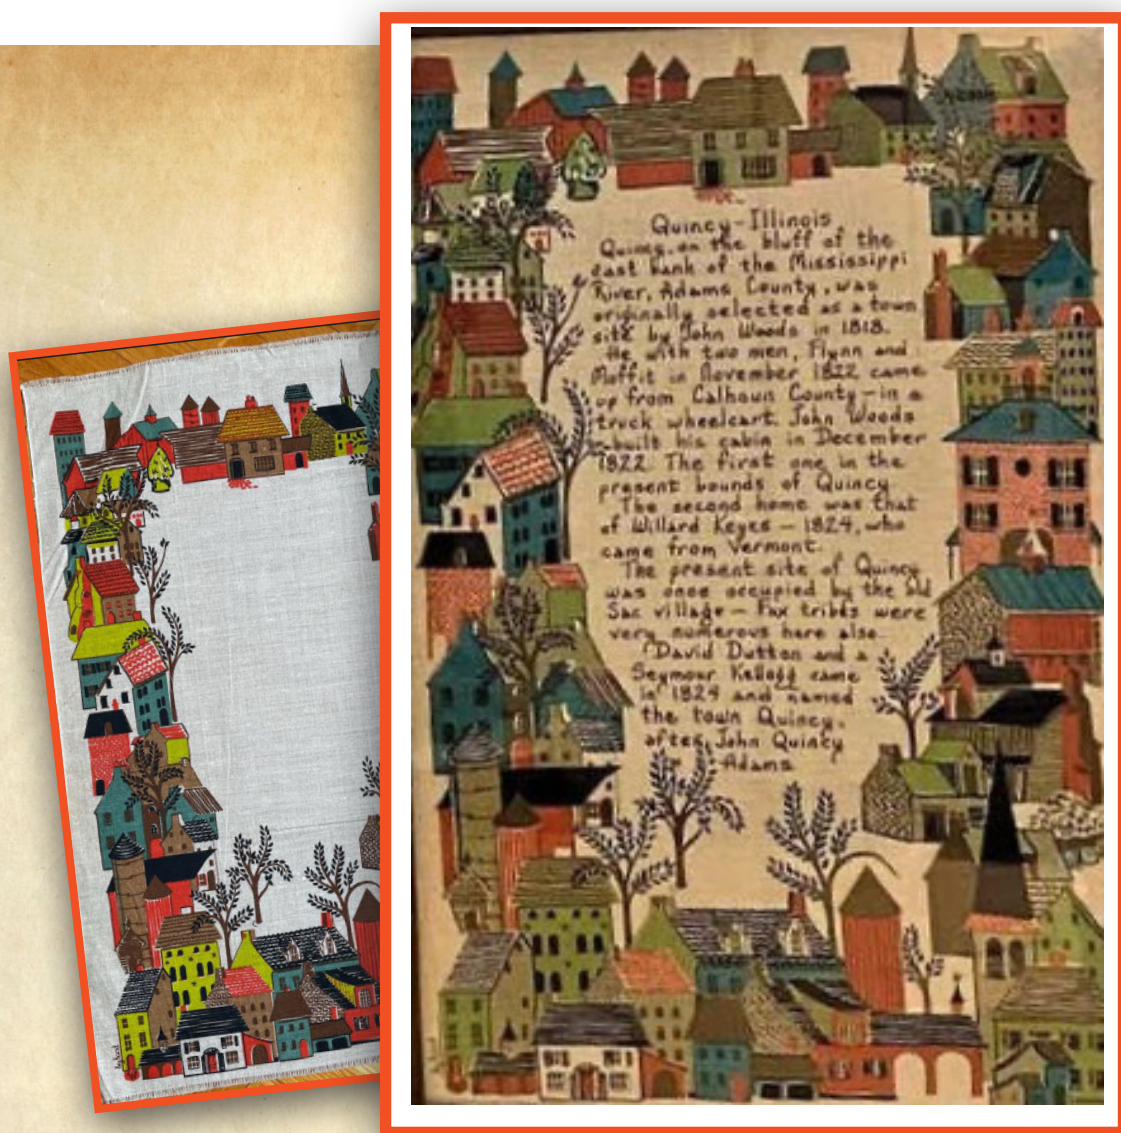 Quincy-Illinois
Quincy, on the bluff of the
east bank of the Mississippi
River, Adams County, was
originally selected as a town
site by John Woods in 1818.
He with two men, Flynn and
Moffit in November 1822 came
up from Calhoun County - in a
truck wheelcart. John Woods
built his cabin in December
1822. The first one in the
present bounds of Quincy
The second home was that
of Willard Keyes - 1824, who
came from Vermont.
The present site of Quincy
was once occupied by the old
Sac village - Fox tribes were
very numerous here also
David Dutton and a
Seymour Kellogg came
in 1824 and named
the town Quincy,
after John Quincy
Adams